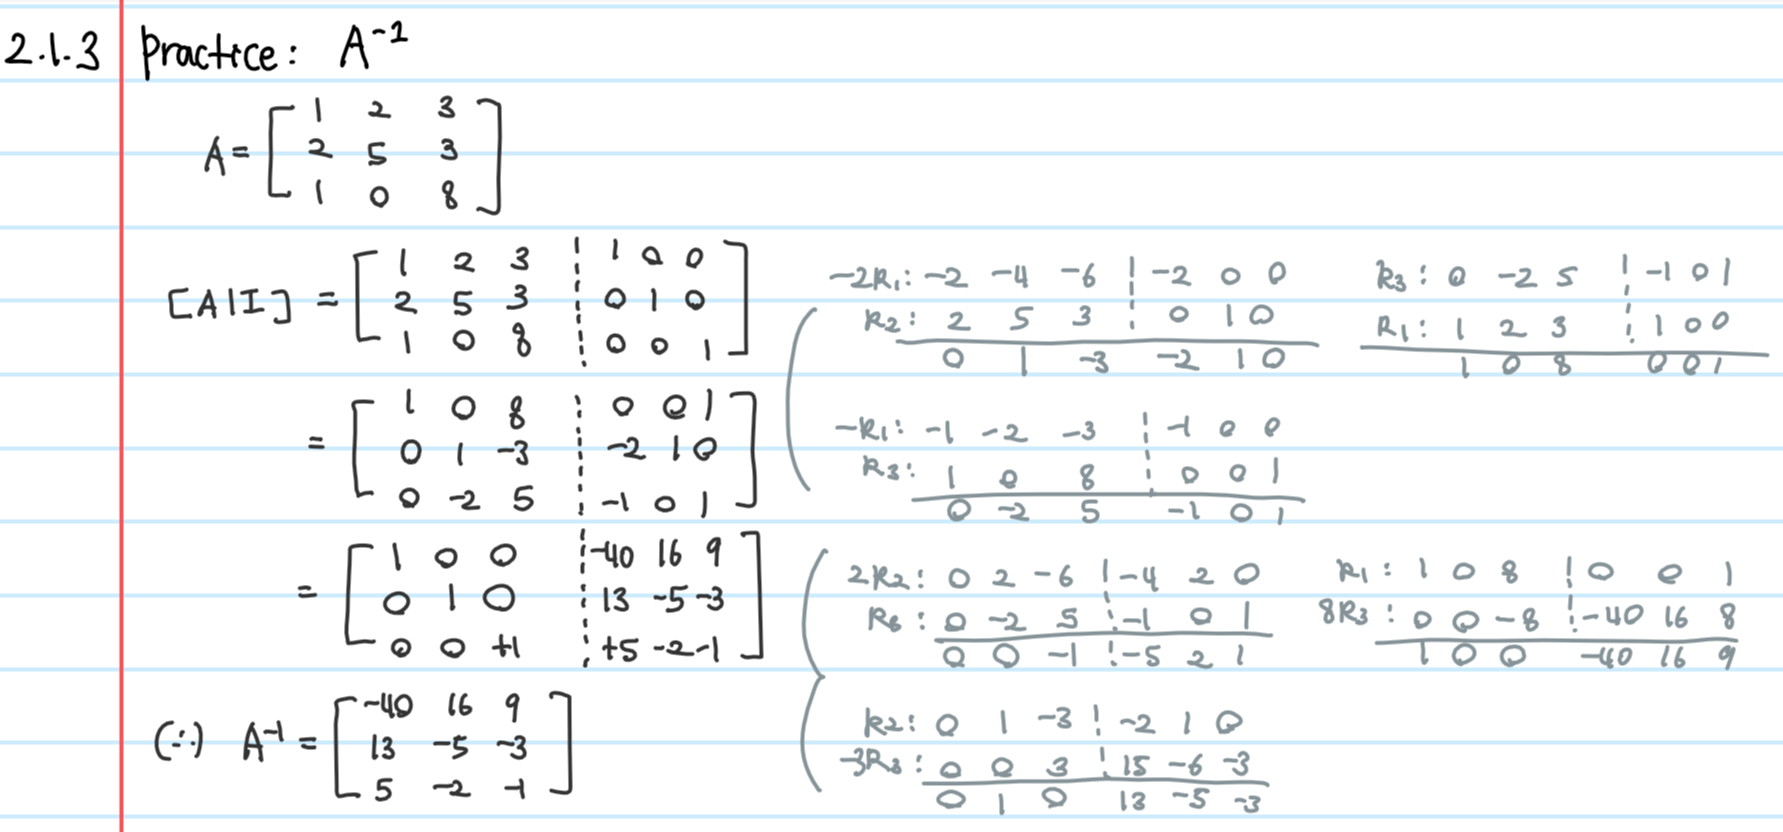 2.1.3 Practice: A⁻¹
A = [ 1 2 3
2 5 3
1 0 8 ]
[A|I] = [ 1 2 3 ¦ 1 0 0
2 5 3 ¦ 0 1 0
1 0 8 ¦ 0 0 1 ]
= [ 1 0 8 ¦ 0 0 1
0 1 -3 ¦ -2 1 0
0 -2 5 ¦ -1 0 1 ]
= [ 1 0 0 ¦ -40 16 9
0 1 0 ¦ 13 -5 -3
0 0 +1 ¦ +5 -2 -1 ]
(∴) A⁻¹ = [ -40 16 9
13 -5 -3
5 -2 -1 ]
-2R₁: -2 -4 -6 ¦ -2 0 0
R₂: 2 5 3 ¦ 0 1 0
0 1 -3 -2 1 0
R₃: 0 -2 5 ¦ -1 0 1
R₁: 1 2 3 ¦ 1 0 0
1 0 8 0 0 1
-R₁: -1 -2 -3 ¦ -1 0 0
R₃: 1 0 8 ¦ 0 0 1
0 -2 5 -1 0 1
2R₂: 0 2 -6 ¦ -4 2 0
R₃: 0 -2 5 ¦ -1 0 1
0 0 -1 ¦ -5 2 1
R₁: 1 0 8 ¦ 0 0 1
8R₃: 0 0 -8 ¦ -40 16 8
1 0 0 -40 16 9
R₂: 0 1 -3 ¦ -2 1 0
-3R₃: 0 0 3 ¦ 15 -6 -3
0 1 0 13 -5 -3